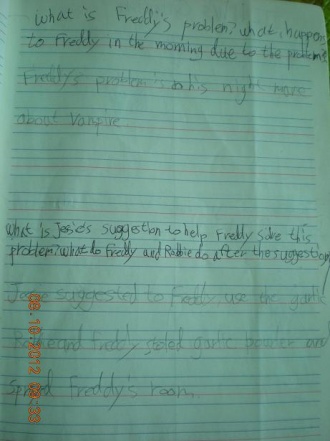 what is Freddy's problem? what happen
to Freddy in the morning due to the problem?
Freddy's problem is his night mare
about Vampire
what is Josie's suggestion to help Freddy solve this
problem? what do Freddy and Robbie do after the suggestion
Josie suggested to Freddy use the garlic
and Freddy garlic powder and
spread Freddy's room.
09.10.2012